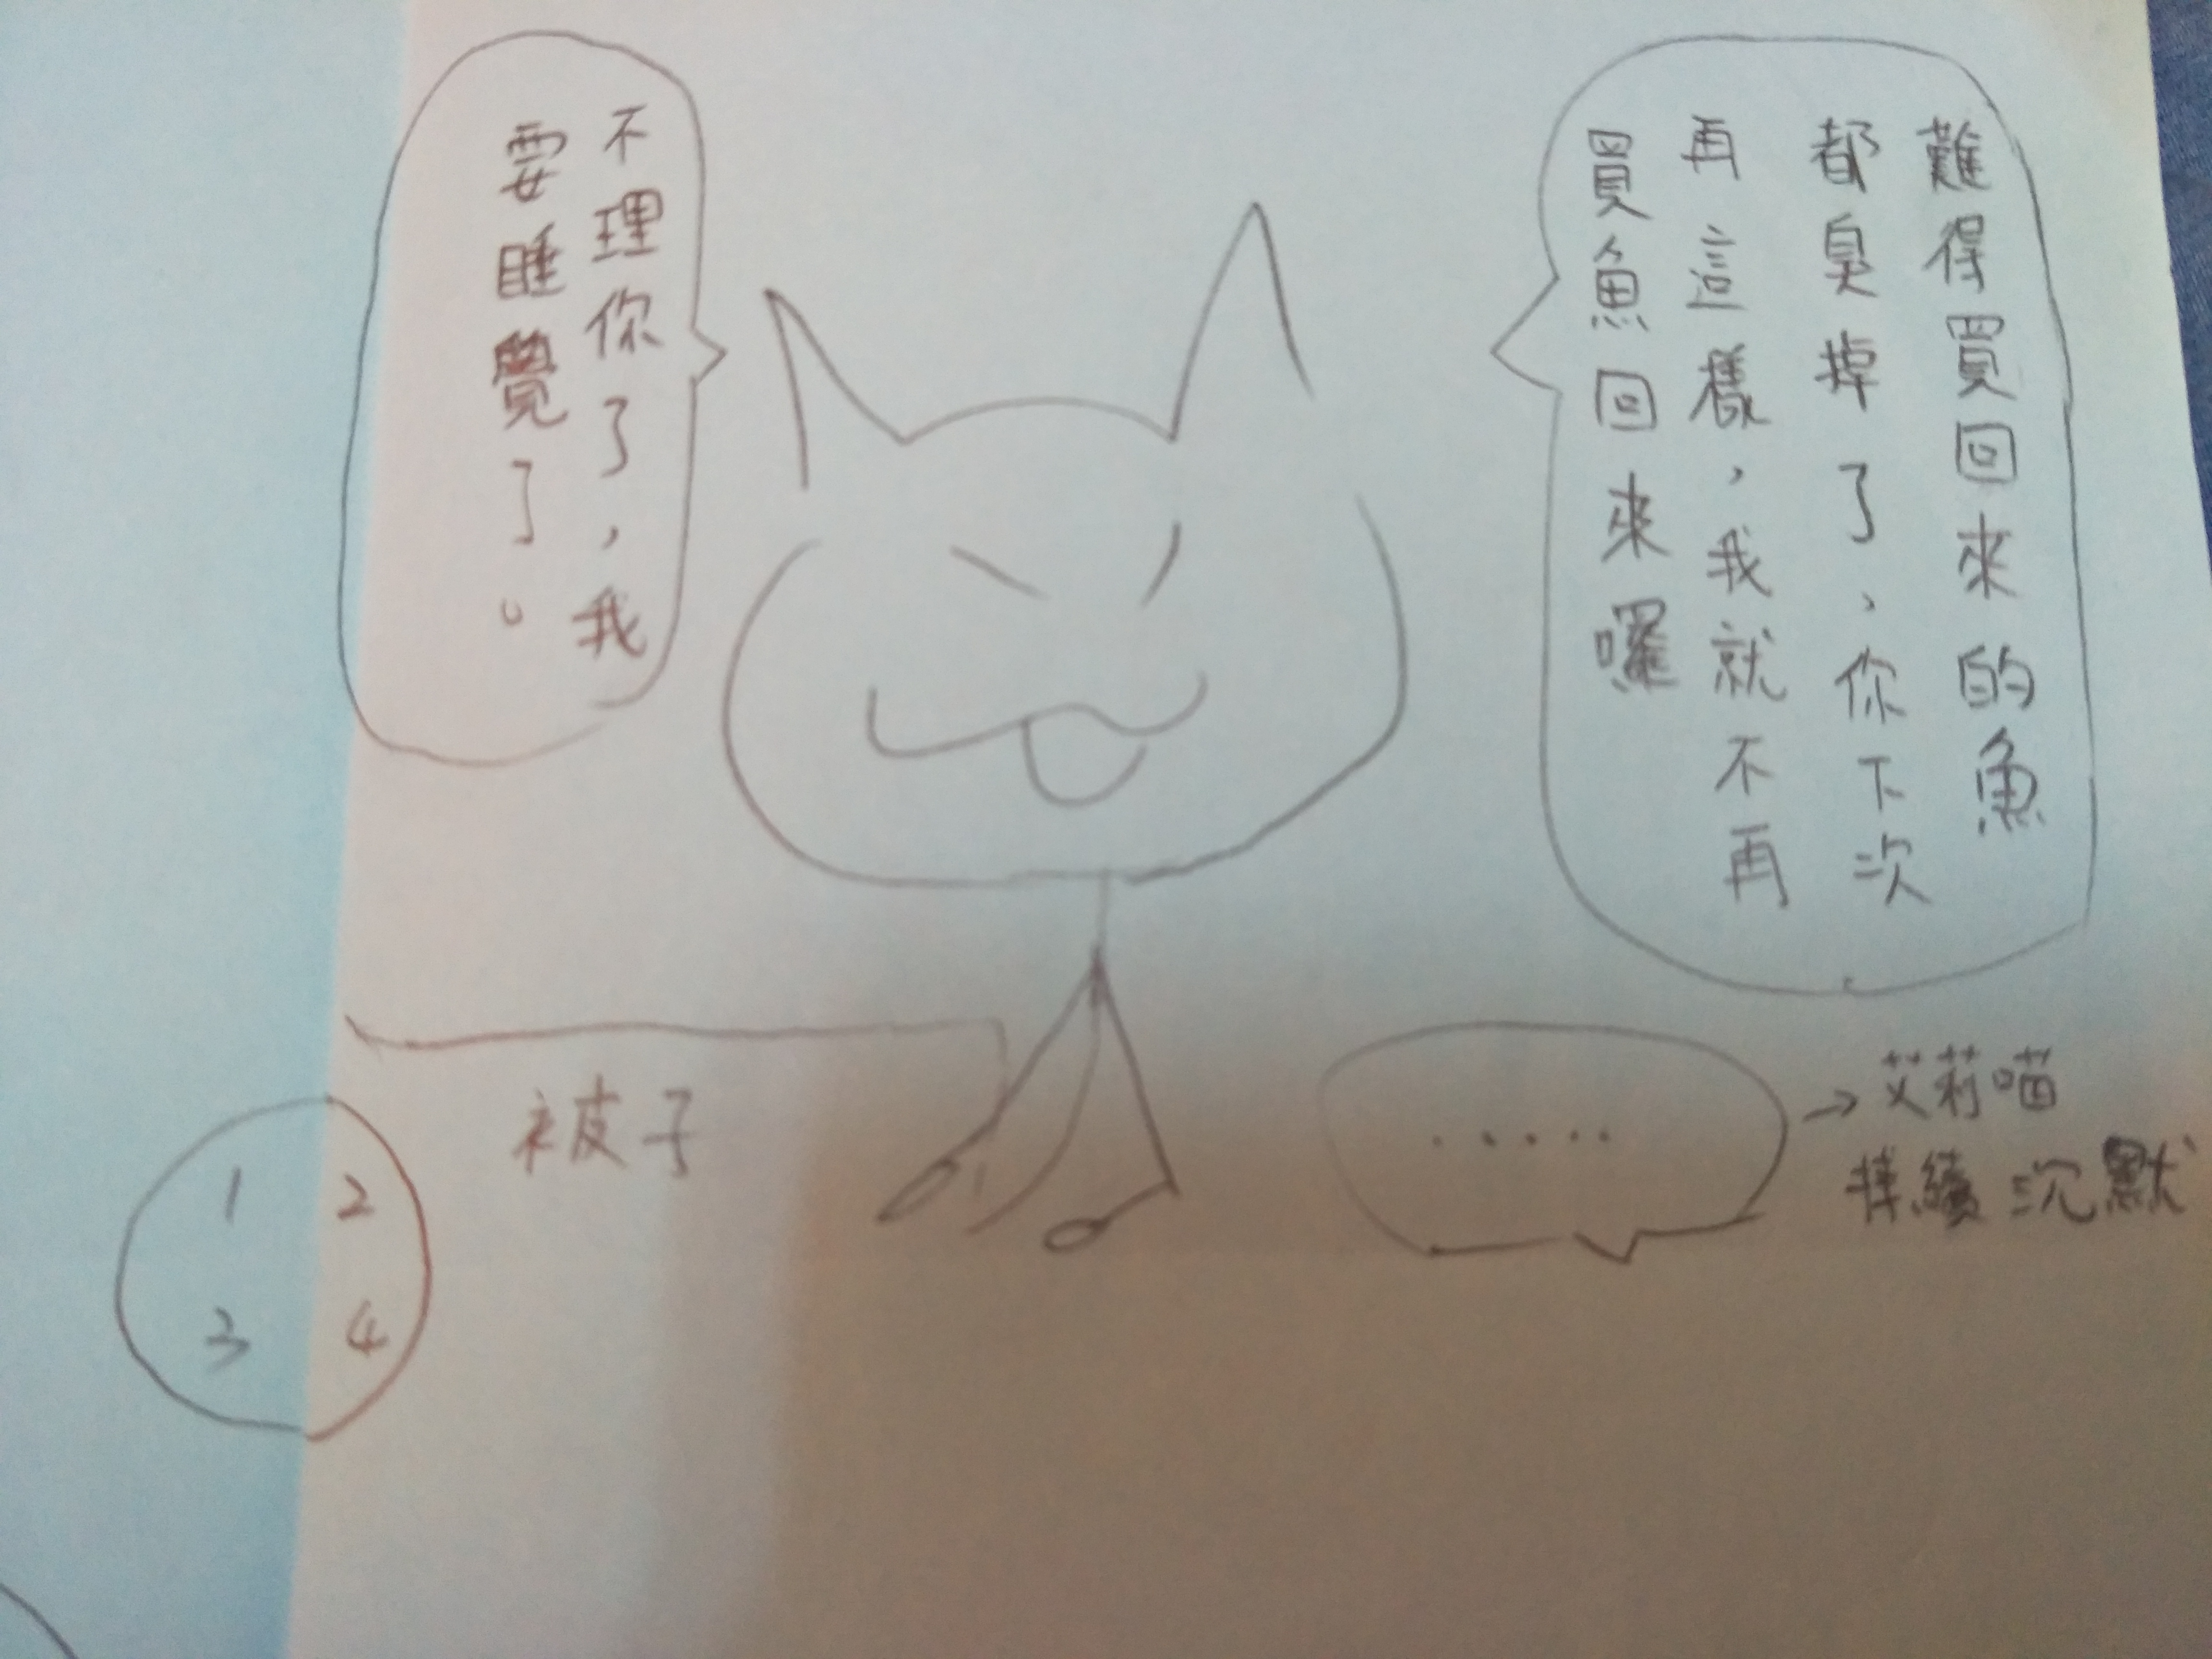 難得買回來的魚
都臭掉了，你下次
再這樣，我就不再
買魚回來囉
不理你了，我
要睡覺了。
.....
→艾莉喵
持續沉默
被子
1 2
3 4